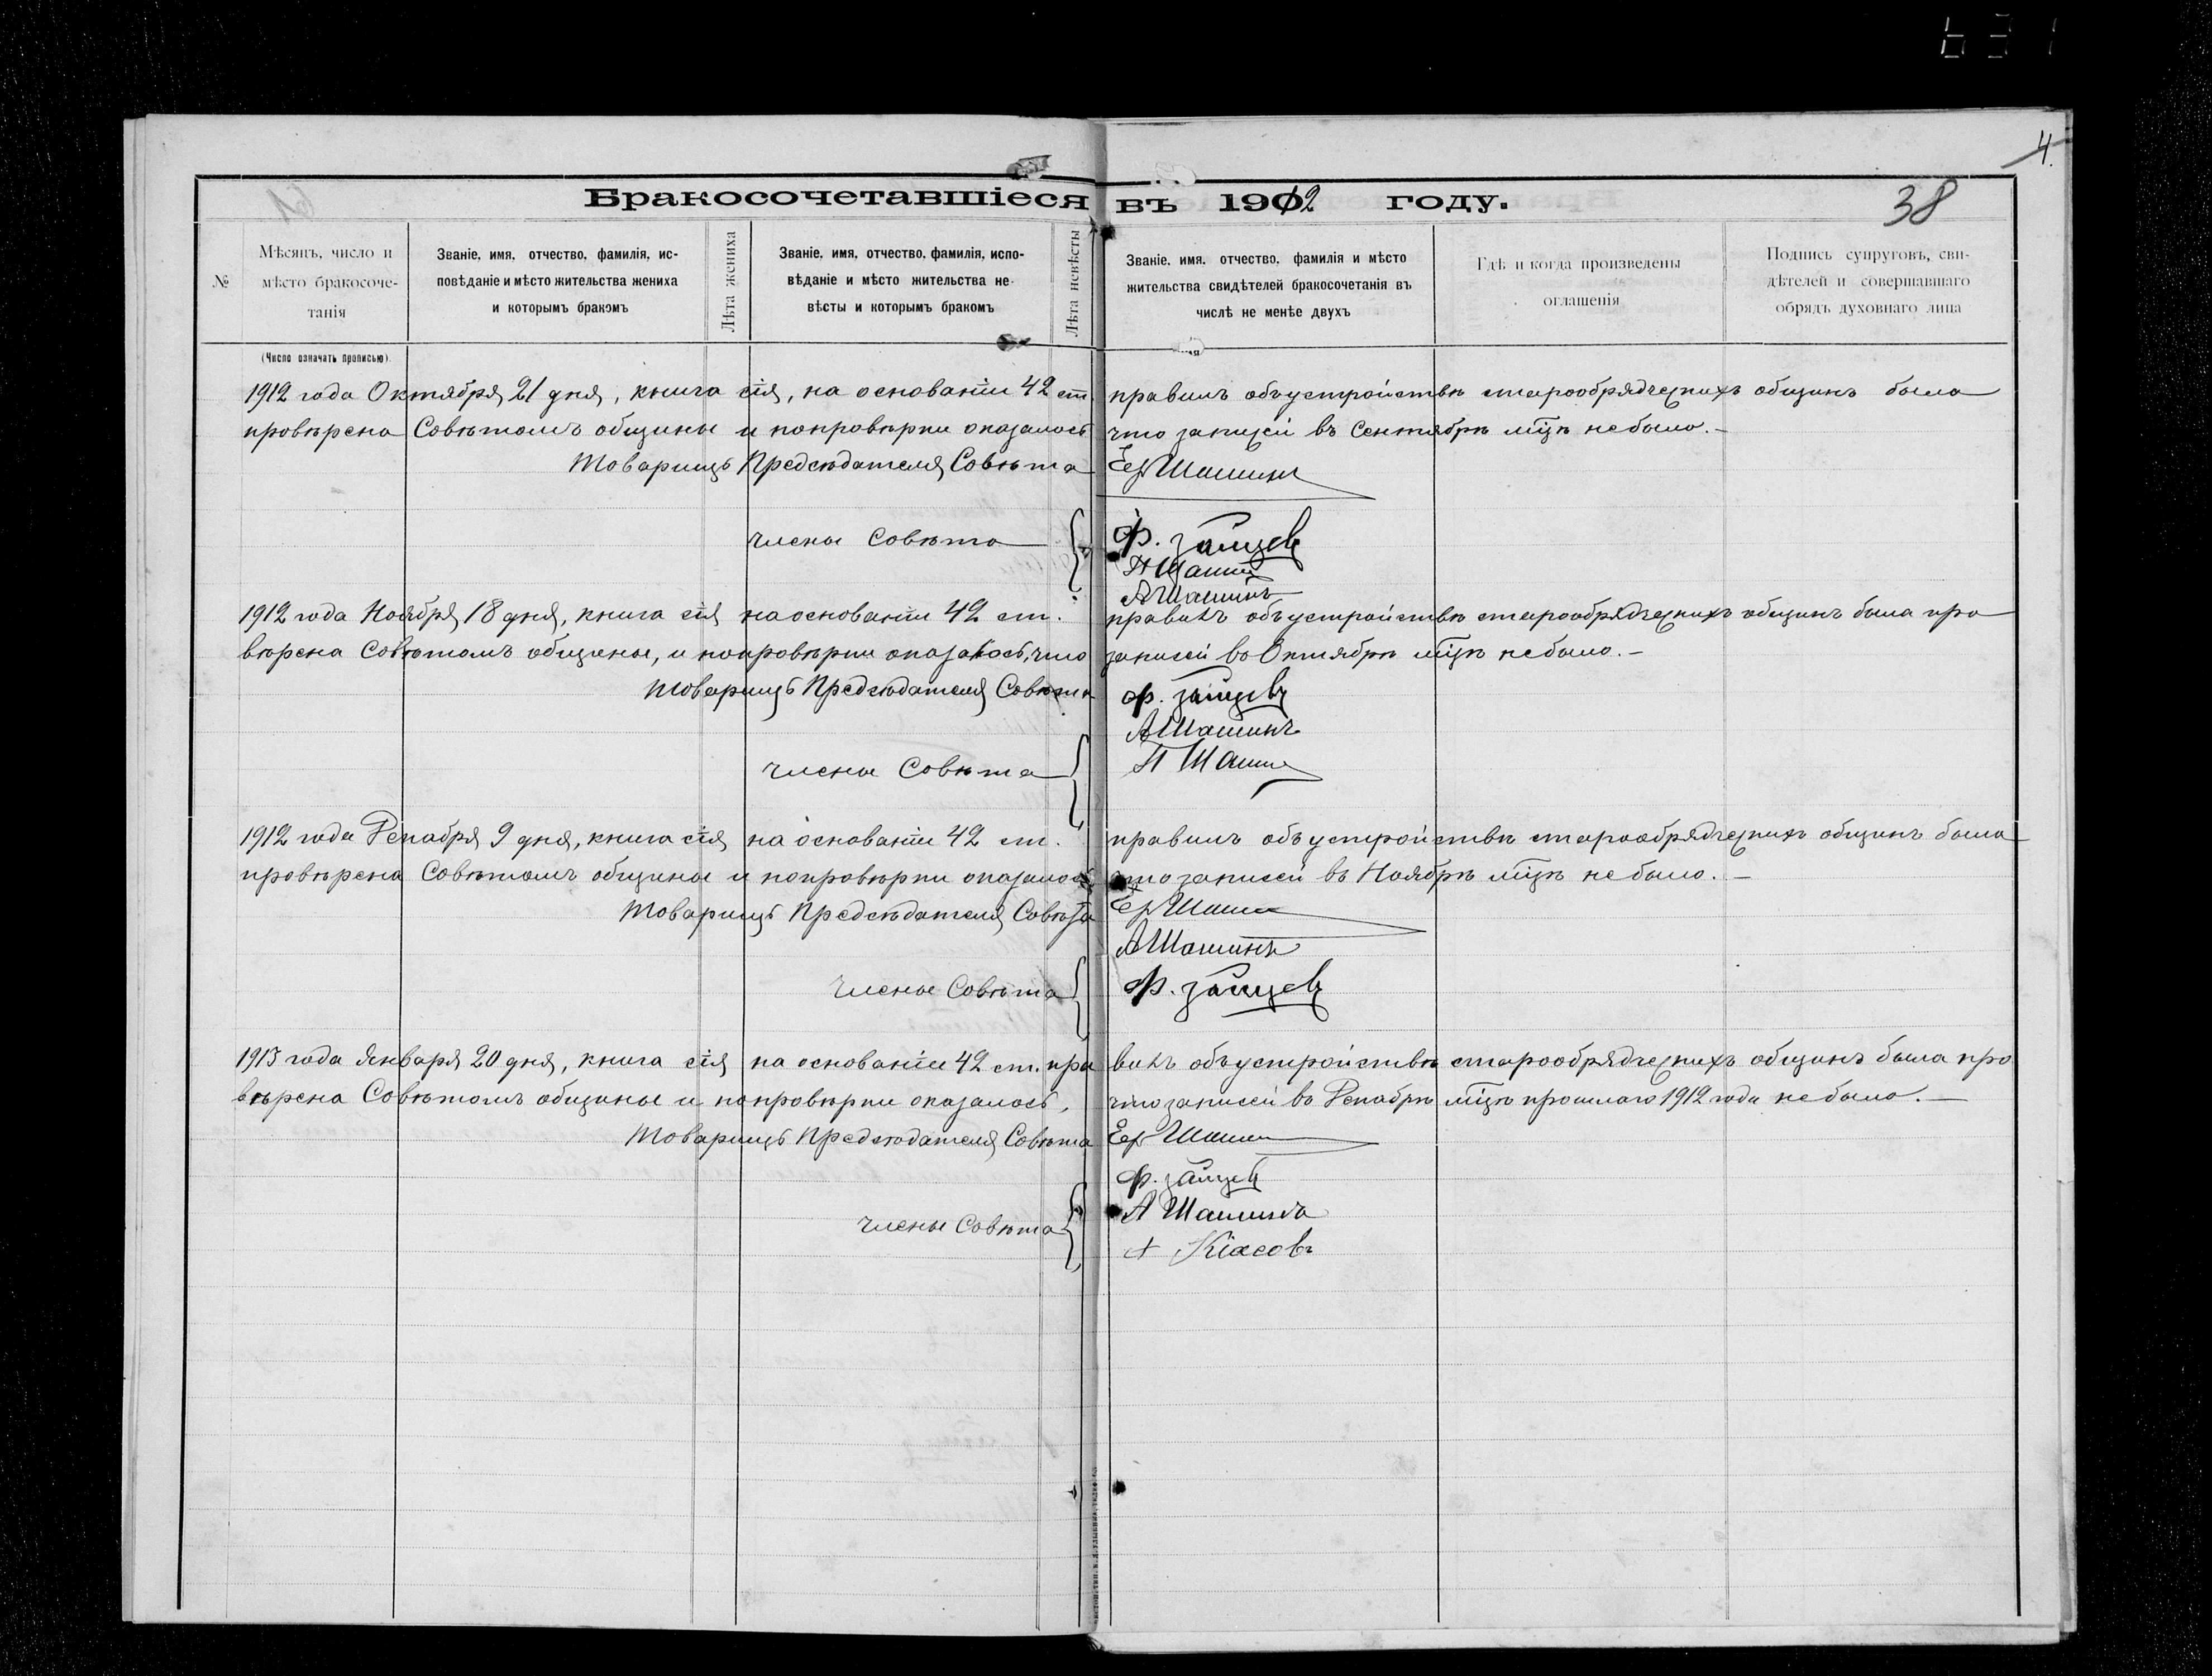 4.
Бракосочетавшіеся въ 1912 году.
38
№
Мѣсяцъ, число и
мѣсто бракосоче-
танія
Званіе, имя, отчество, фамилія, ис-
повѣданіе и мѣсто жительства жениха
и которымъ бракомъ
Лѣта жениха
Званіе, имя, отчество, фамилія, испо-
вѣданіе и мѣсто жительства не-
вѣсты и которымъ бракомъ
Лѣта невѣсты
Званіе, имя, отчество, фамилія и мѣсто
жительства свидѣтелей бракосочетанія въ
числѣ не менѣе двухъ
Гдѣ и когда произведены
оглашенія
Подпись супруговъ, сви-
дѣтелей и совершавшаго
обрядъ духовнаго лица
(Число означать прописью).
1912 года Октября 21 дня, книга сія, на основаніи 42 ст. правилъ объустройствѣ старообрядческихъ общинъ была
провѣрена Совѣтомъ общины и попровѣрки оказалось что записей въ Сентябрѣ мцѣ небыло. –
Товарищъ Предсѣдателя Совѣта Еф Шашин
Члены Совѣта Ф. Зайцев
П Шашин
А Шашинъ
1912 года Ноября 18 дня, книга сія на основаніи 42 ст. правилъ объустройствѣ старообрядческихъ общинъ была про
вѣрена Совѣтомъ общины, и попровѣрки оказалось, что записей въ Октябрѣ мцѣ небыло. –
Товарищъ Предсѣдателя Совѣта Ф. Зайцевъ
А Шашинъ
Члены Совѣта П Шашин
1912 года Декабря 9 дня, книга сія на основаніи 42 ст. правилъ объустройствѣ старообрядческихъ общинъ была
провѣрена Совѣтомъ общины и попровѣрки оказалось что записей въ Ноябрѣ мцѣ небыло. –
Товарищъ Предсѣдателя Совѣта Еф Шашин
А Шашинъ
Члены Совѣта Ф. Зайцев
1913 года Января 20 дня, книга сія на основаніи 42 ст. пра вилъ объустройствѣ старообрядческихъ общинъ была про
вѣрена Совѣтомъ общины и попровѣрки оказалось, что записей въ Декабрѣ мцѣ прошлаго 1912 года небыло. –
Товарищъ Предсѣдателя Совѣта Еф Шашин
Ф. Зайцев
Члены Совѣта А Шашинъ